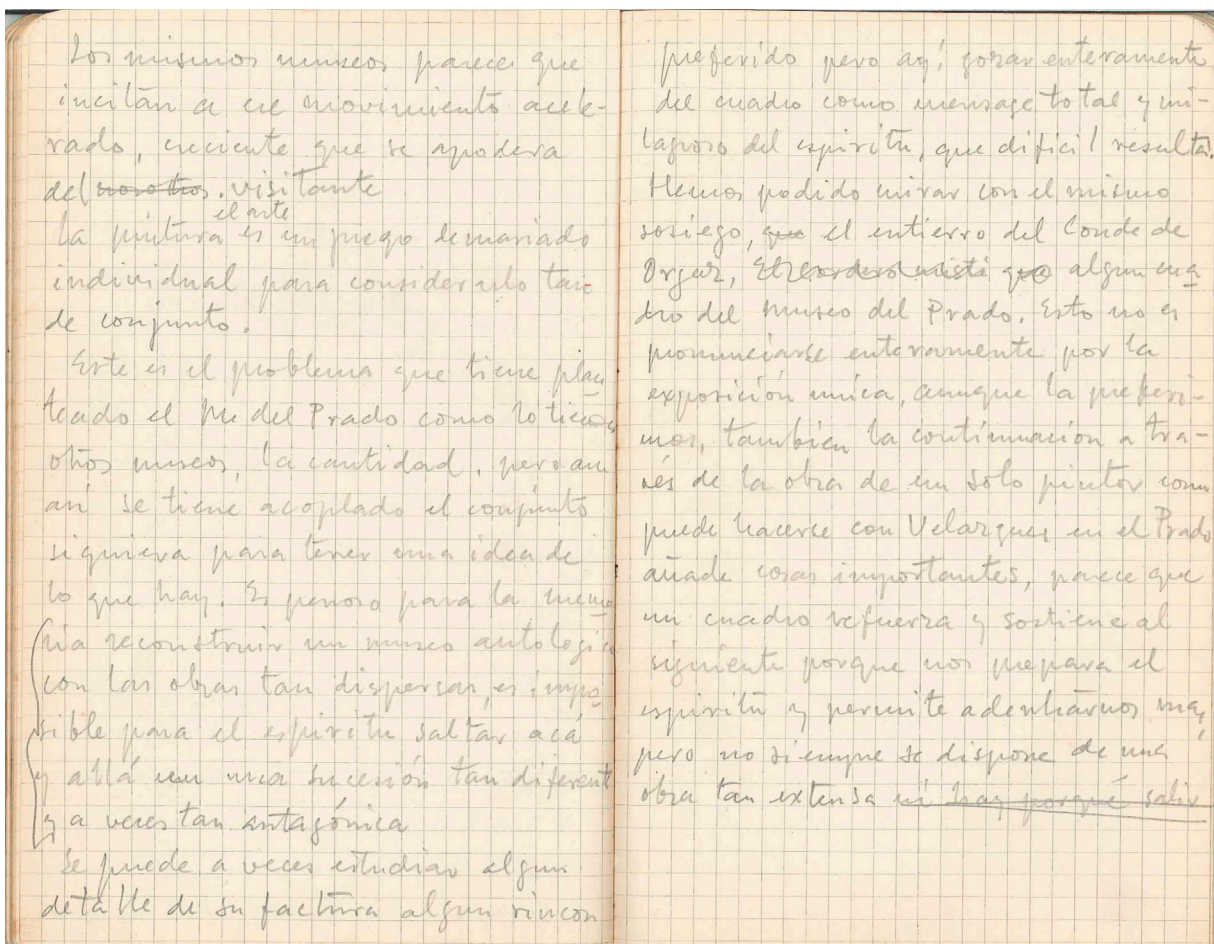 Los mismos museos parece que
incitan a ese movimiento acele-
rado, creciente que se apodera
del nosotros. visitante
el arte
La pintura es un juego demasiado
individual para considerarlo tan
de conjunto.
Este es el problema que tiene plan
teado el M. del Prado como lo tienen
otros museos, la cantidad, pero aun
asi se tiene acoplado el conjunto
siquiera para tener una idea de
lo que hay. Es penoso para la memo
ria reconstruir un museo antologico
con las obras tan dispersas, es impo
sible para el espiritu saltar acá
y allá una sucesión tan diferente
y a veces tan antagónica
Se puede a veces estudiar algun
detalle de su factura algun rincon
preferido pero ay! gozar enteramente
del cuadro como mensage total y mi-
lagroso del espiritu, que dificil resulta.
Hemos podido mirar con el mismo
sosiego, que el entierro del Conde de
Orgaz, El cordero misti que algun cua
dro del museo del Prado. Esto no es
pronunciarse enteramente por la
exposición unica, aunque la preferi-
mos, tambien la continuación a tra-
vés de la obra de un solo pintor como
puede hacerse con Velazquez en el Prado
añade cosas importantes, parece que
un cuadro refuerza y sostiene al
siguiente porque nos prepara el
espiritu y permite adentrarnos mas,
pero no siempre se dispone de una
obra tan extensa ni hay porqué salir